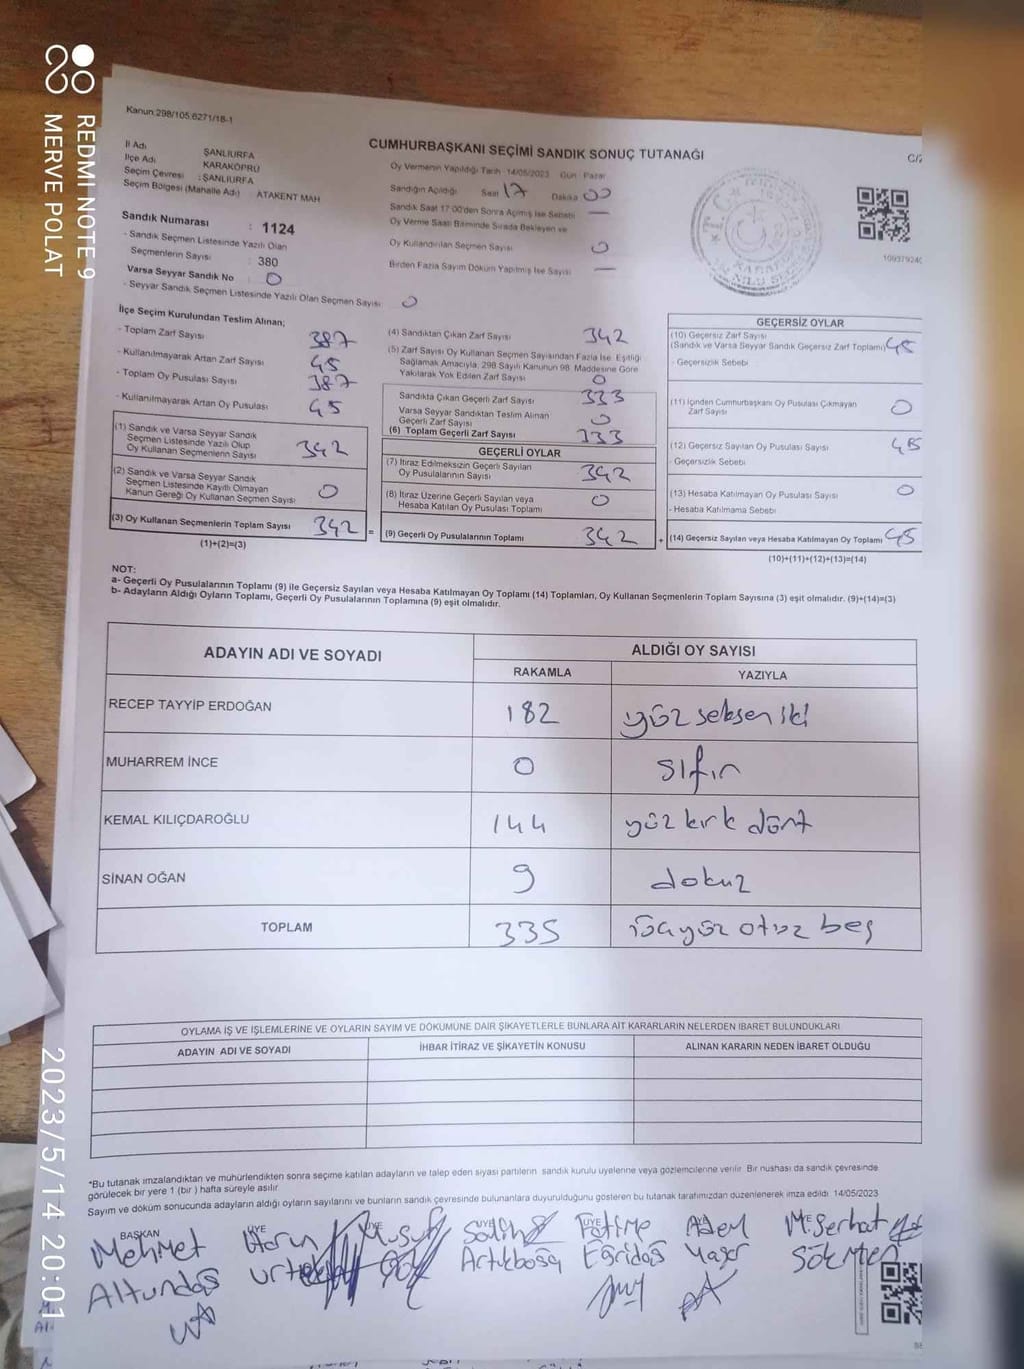 REDMI NOTE 9
MERVE POLAT
2023/5/14 20:01
Kanun.298/105.6271/18-1
CUMHURBAŞKANI SEÇİMİ SANDIK SONUÇ TUTANAĞI
İl Adı ŞANLIURFA
İlçe Adı KARAKÖPRÜ
Seçim Çevresi : ŞANLIURFA
Seçim Bölgesi (Mahalle Adı) : ATAKENT MAH
Oy Vermenin Yapıldığı Tarih 14/05/2023 Gün Pazar
Sandığın Açıldığı Saat 17 Dakika 00
Sandık Saat 17:00'den Sonra Açılmış İse Sebebi —
Oy Verme Saati Bitiminde Sırada Bekleyen ve
Oy Kullandırılan Seçmen Sayısı 0
Birden Fazla Sayım Döküm Yapılmış İse Sayısı —
Sandık Numarası : 1124
- Sandık Seçmen Listesinde Yazılı Olan
Seçmenlerin Sayısı : 380
Varsa Seyyar Sandık No : 0
- Seyyar Sandık Seçmen Listesinde Yazılı Olan Seçmen Sayısı 0
İlçe Seçim Kurulundan Teslim Alınan;
- Toplam Zarf Sayısı 387
- Kullanılmayarak Artan Zarf Sayısı 45
- Toplam Oy Pusulası Sayısı 387
- Kullanılmayarak Artan Oy Pusulası 45
(1) Sandık ve Varsa Seyyar Sandık
Seçmen Listesinde Yazılı Olup
Oy Kullanan Seçmenlerin Sayısı 342
(2) Sandık ve Varsa Seyyar Sandık
Seçmen Listesinde Kayıtlı Olmayan
Kanun Gereği Oy Kullanan Seçmen Sayısı 0
(3) Oy Kullanan Seçmenlerin Toplam Sayısı 342 =
(1)+(2)=(3)
(4) Sandıktan Çıkan Zarf Sayısı 342
(5) Zarf Sayısı Oy Kullanan Seçmen Sayısından Fazla İse, Eşitliği
Sağlamak Amacıyla, 298 Sayılı Kanunun 98. Maddesine Göre
Yakılarak Yok Edilen Zarf Sayısı 0
Sandıkta Çıkan Geçerli Zarf Sayısı 333
Varsa Seyyar Sandıktan Teslim Alınan
Geçerli Zarf Sayısı 0
(6) Toplam Geçerli Zarf Sayısı 333
GEÇERLİ OYLAR
(7) İtiraz Edilmeksizin Geçerli Sayılan
Oy Pusulalarının Sayısı 342
(8) İtiraz Üzerine Geçerli Sayılan veya
Hesaba Katılan Oy Pusulası Toplamı 0
(9) Geçerli Oy Pusulalarının Toplamı 342 +
GEÇERSİZ OYLAR
(10) Geçersiz Zarf Sayısı
(Sandık ve Varsa Seyyar Sandık Geçersiz Zarf Toplamı) 45
- Geçersizlik Sebebi
(11) İçinden Cumhurbaşkanı Oy Pusulası Çıkmayan
Zarf Sayısı 0
(12) Geçersiz Sayılan Oy Pusulası Sayısı 45
- Geçersizlik Sebebi
(13) Hesaba Katılmayan Oy Pusulası Sayısı 0
- Hesaba Katılmama Sebebi
(14) Geçersiz Sayılan veya Hesaba Katılmayan Oy Toplamı 45
(10)+(11)+(12)+(13)=(14)
NOT:
a- Geçerli Oy Pusulalarının Toplamı (9) ile Geçersiz Sayılan veya Hesaba Katılmayan Oy Toplamı (14) Toplamları, Oy Kullanan Seçmenlerin Toplam Sayısına (3) eşit olmalıdır. (9)+(14)=(3)
b- Adayların Aldığı Oyların Toplamı, Geçerli Oy Pusulalarının Toplamına (9) eşit olmalıdır.
ADAYIN ADI VE SOYADI ALDIĞI OY SAYISI
RAKAMLA YAZIYLA
RECEP TAYYİP ERDOĞAN 182 yüz seksen iki
MUHARREM İNCE 0 sıfır
KEMAL KILIÇDAROĞLU 144 yüz kırk dört
SİNAN OĞAN 9 dokuz
TOPLAM 335 üçyüz otuz beş
OYLAMA İŞ VE İŞLEMLERİNE VE OYLARIN SAYIM VE DÖKÜMÜNE DAİR ŞİKAYETLERLE BUNLARA AİT KARARLARIN NELERDEN İBARET BULUNDUKLARI
ADAYIN ADI VE SOYADI İHBAR İTİRAZ VE ŞİKAYETİN KONUSU ALINAN KARARIN NEDEN İBARET OLDUĞU
*Bu tutanak imzalandıktan ve mühürlendikten sonra seçime katılan adayların ve talep eden siyasi partilerin sandık kurulu üyelerine veya gözlemcilerine verilir. Bir nüshası da sandık çevresinde
görülecek bir yere 1 (bir) hafta süreyle asılır.
Sayım ve döküm sonucunda adayların aldığı oyların sayılarını ve bunların sandık çevresinde bulunanlara duyurulduğunu gösteren bu tutanak tarafımızdan düzenlenerek imza edildi. 14/05/2023
BAŞKAN ÜYE ÜYE ÜYE ÜYE
Mehmet Yusuf Salih Fatime Adem M.Serhat
Altundaş Artukboğa Eğridaş Yaşar Sökmen